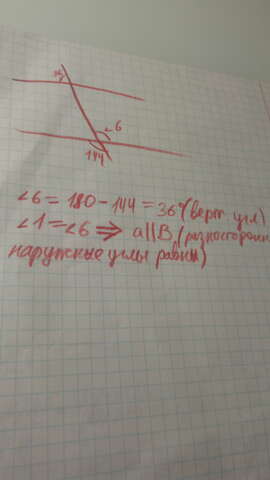 36
∠6
144
∠6 = 180 - 144 = 36°(верт. угл)
∠1 = ∠6 ⇒ a||B (разносторон
наружные углы равны)